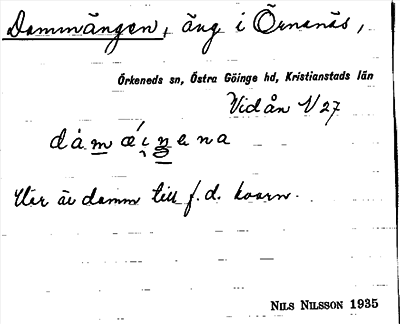 Dammängen, äng i Örnanäs,
Örkeneds sn, Östra Göinge hd, Kristianstads län
Vid ån V 27
Här är damm till f.d. kvarn.
NILS NILSSON 1935